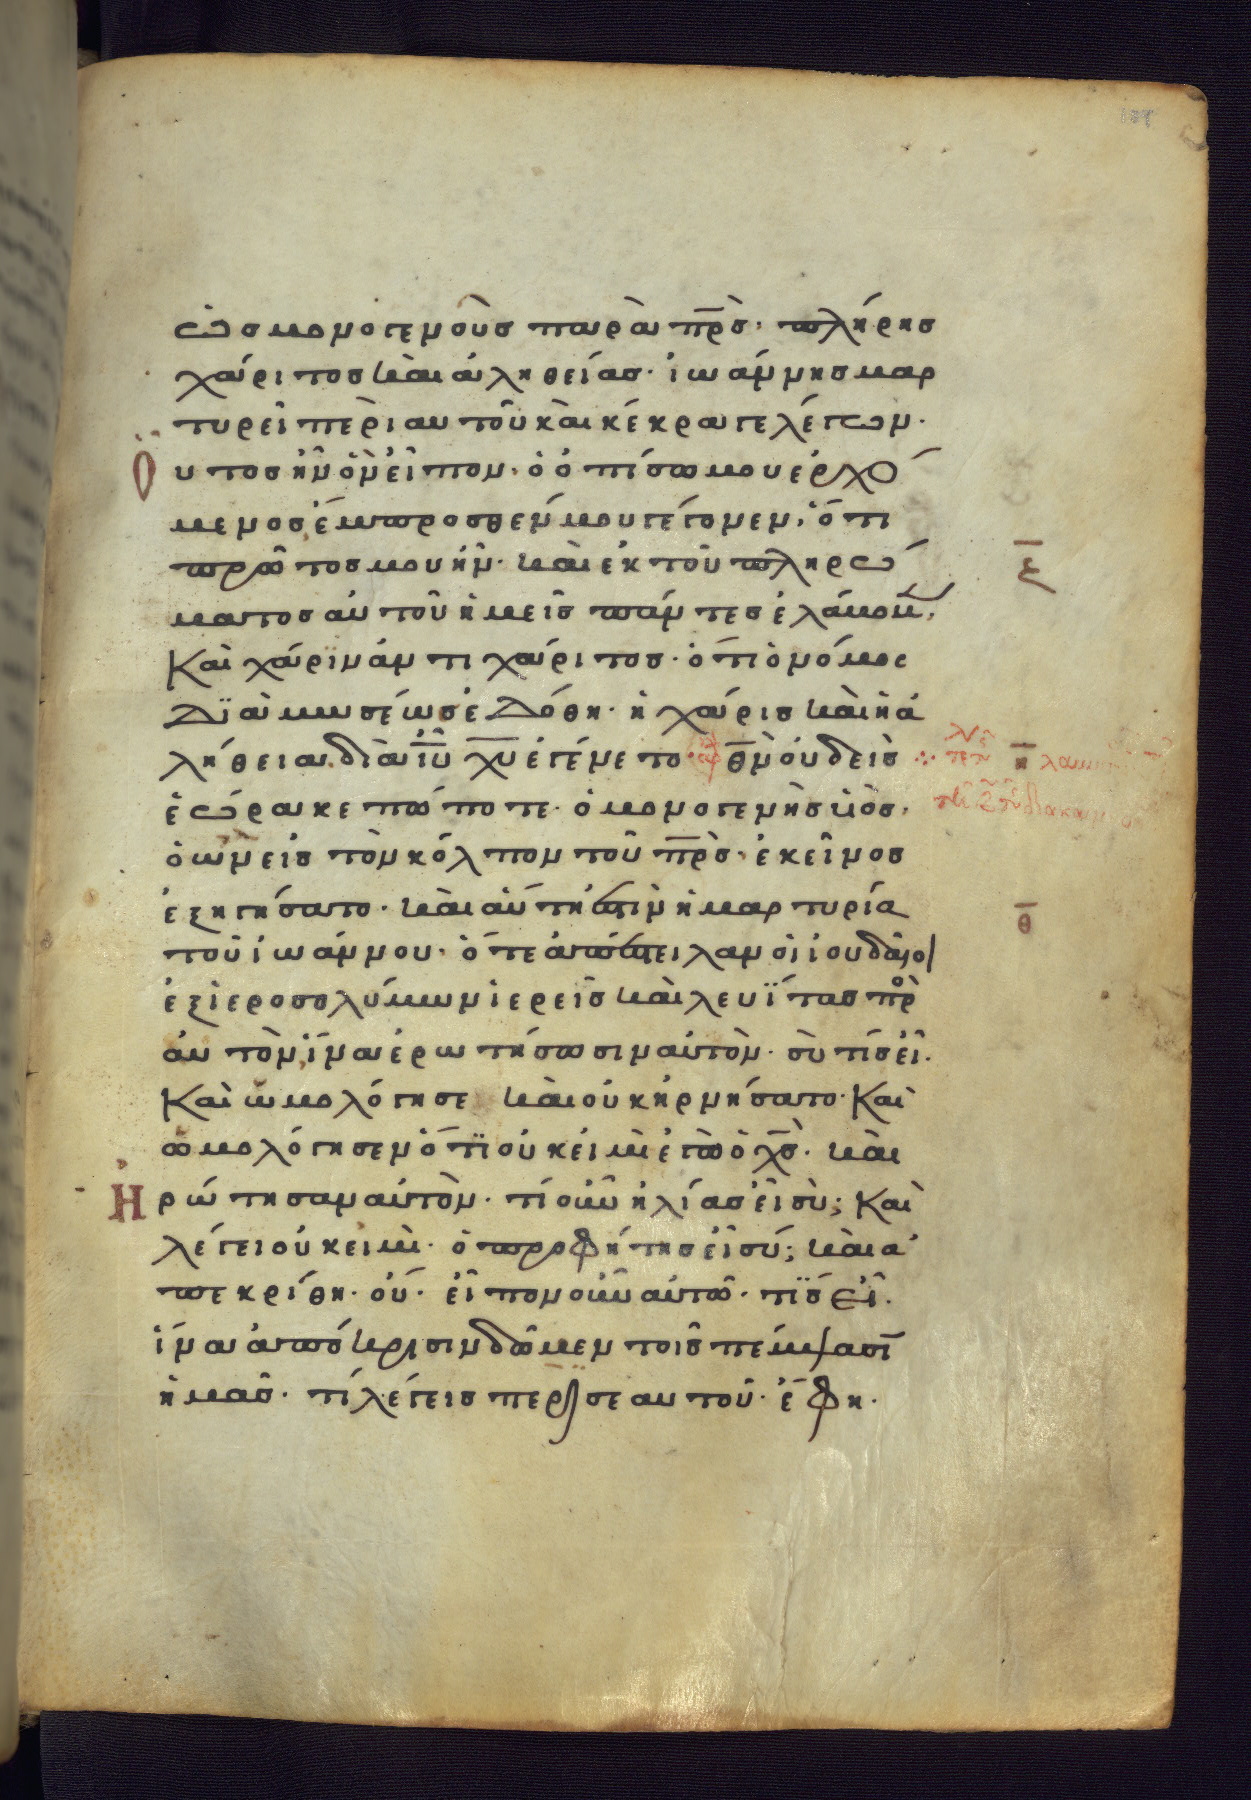 ὡσ μονογενοὺσ παρὰ π̅ρ̅ὸ̅σ̅· πλήρησ
χάριτοσ καὶ ἀληθείασ· ἰωάννησ μαρ
τυρεῖ περὶ αυτοῦ καὶ κέκραγε λέγων·
Ουτοσ ἦν ὃν εἶπον· ὁ ὀπίσω μου ἐρχό
μενοσ ἔμπροσθέν μου γέγονεν, ὅτι
πρῶτοσ μου ἦν· καὶ ἐκ τοῦ πληρώ
ματοσ αὐτοῦ ἡμεῖσ πάντεσ ἐλάβομ(εν),
Καὶ χάριν ἀντι χάριτοσ· ὅτι ὁ νόμοσ
Διὰ μωσέωσ ἐδόθη· ἡ χάρισ καὶ ἡ ἀ
λήθεια διὰ ι̅υ̅ χ̅υ̅ ἐγένετο· θ̅ν̅ ὀυδεὶσ
ἑώρακε πώποτε· ὁ μονογενὴσ υἱὸσ·
ὁ ὢν εἰσ τὸν κόλπον τοῦ π̅ρ̅σ̅· ἐκεῖνοσ
ἐξηγήσατο· καὶ αὕτη ἐστὶν ἡ μαρτυρία
τοῦ ἰωάννου· ὅτε ἀπέστειλαν ὁι ἰουδαῖοι
ἐξ ἱεροσολύμων ἱερεῖσ καὶ λευΐτασ πρὸσ
ἀυτὸν ἵνα ἐρωτήσωσιν αὐτὸν· σὺ τίσ εἶ·
Καὶ ὡμολόγησε καὶ οὐκ ἠρνήσατο· Καὶ
ὡμολόγησεν ὅτι οὐκ εἰμὶ ἐγὼ ὁ χ̅σ̅· καὶ
Ἠρώτησαν αὐτὸν· τί οὖν ἠλίασ εἶ σὺ; Καὶ
λέγει οὐκ εἰμὶ· ὁ προφήτησ εἶ σύ; καὶ ἀ
πεκρίθη· οὔ· εἶπον οὖν αὐτῶ· τίσ εἶ·
ἵνα ἀπόκρισιν δῶμεν τοῖσ πέμψασιν
ἡμᾶσ· τί λέγεισ περὶ σεαυτοῦ· ἔφη·
ξ̅
η̅
θ̅